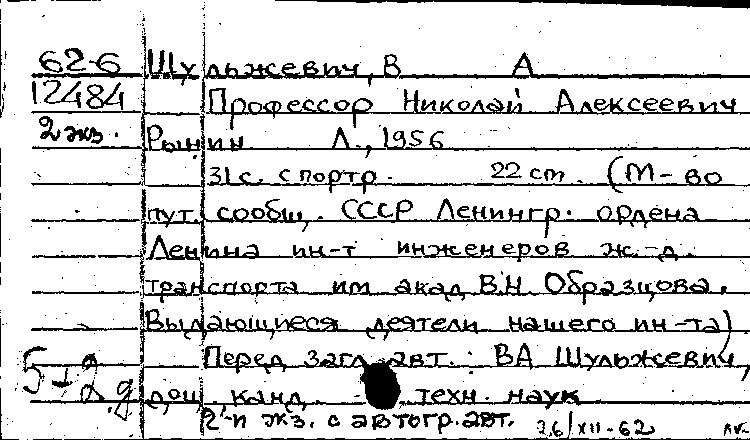 62-6 Шульжевич, В А
12484 Профессор Николай Алексеевич
2 экз. Рынин Л., 1956
31с. с портр. 22 cm. (М-во
пут. сообщ. СССР Ленингр. ордена
Ленина ин-т инженеров ж.-д.
транспорта им акад В.Н Образцова.
Выдающиеся деятели нашего ин-та)
Перед загл. авт.: ВА Шульжевич,
доц. канд. техн. наук
2-й экз. с автогр. авт. 26/XII-62